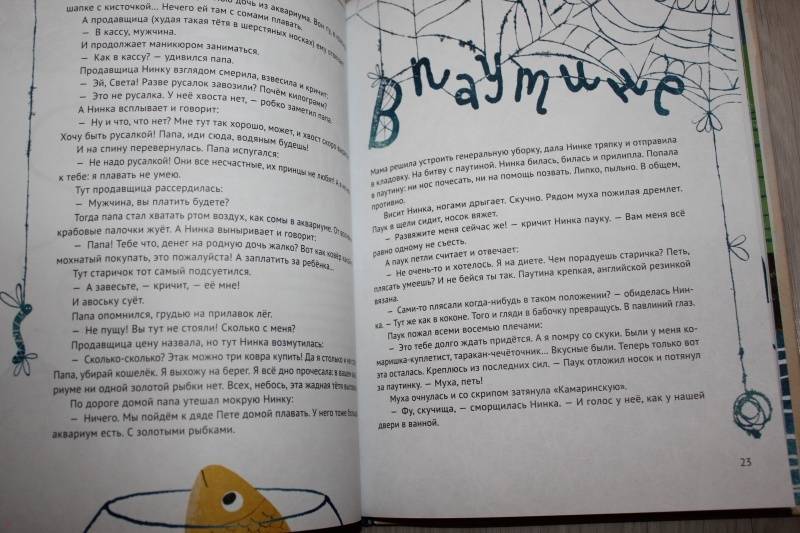 дочь из аквариума. Вон ту, в
шапке с кисточкой... Нечего ей там с сомами плавать.
А продавщица (худая такая тётя в шерстяных носках) ему отвечает:
— В кассу, мужчина.
И продолжает маникюром заниматься.
— Как в кассу? — удивился папа.
Продавщица Нинку взглядом смерила, взвесила и кричит:
— Эй, Света! Разве русалок завозили? Почём килограмм?
— Это не русалка. У неё хвоста нет, — робко заметил папа.
А Нинка всплывает и говорит:
— Ну и что, что нет? Мне тут так хорошо, может, и хвост скоро
Хочу быть русалкой! Папа, иди сюда, водяным будешь!
И на спину перевернулась. Папа испугался:
— Не надо русалкой! Они все несчастные, их принцы не любят! А я
к тебе: я плавать не умею.
Тут продавщица рассердилась:
— Мужчина, вы платить будете?
Тогда папа стал хватать ртом воздух, как сомы в аквариуме. От
крабовые палочки жуёт. А Нинка выныривает и говорит:
— Папа! Тебе что, денег на родную дочь жалко? Вот как ковёр
мохнатый покупать, это пожалуйста! А заплатить за ребёнка...
Тут старичок тот самый подсуетился.
— А завесьте, — кричит, — её мне!
И авоську суёт.
Папа опомнился, грудью на прилавок лёг.
— Не пущу! Вы тут не стояли! Сколько с меня?
Продавщица цену назвала, но тут Нинка возмутилась:
— Сколько-сколько? Этак можно три ковра купить! Да я столько и не
Папа, убирай кошелёк. Я выхожу на берег. Я всё дно прочесала: в вашем
риуме ни одной золотой рыбки нет. Всех, небось, эта жадная тётя
По дороге домой папа утешал мокрую Нинку:
— Ничего. Мы пойдём к дяде Пете домой плавать. У него тоже
аквариум есть. С золотыми рыбками.
В паутине
Мама решила устроить генеральную уборку, дала Нинке тряпку и отправила
в кладовку. На битву с паутиной. Нинка билась, билась и прилипла. Попала
в паутину: ни нос почесать, ни на помощь позвать. Липко, пыльно. В общем,
противно.
Висит Нинка, ногами дрыгает. Скучно. Рядом муха пожилая дремлет.
Паук в щели сидит, носок вяжет.
— Развяжите меня сейчас же! — кричит Нинка пауку. — Вам меня всё
равно одному не съесть.
А паук петли считает и отвечает:
— Не очень-то и хотелось. Я на диете. Чем порадуешь старичка? Петь,
плясать умеешь? И не бейся ты так. Паутина крепкая, английской резинкой
вязана.
— Сами-то плясали когда-нибудь в таком положении? — обиделась Нин-
ка. — Тут же как в коконе. Того и гляди в бабочку превращусь. В павлиний глаз.
Паук пожал всеми восемью плечами:
— Это тебе долго ждать придётся. А я помру со скуки. Были у меня ко-
маришка-куплетист, таракан-чечёточник... Вкусные были. Теперь только вот
эта осталась. Креплюсь из последних сил. — Паук отложил носок и потянул
за паутинку. — Муха, петь!
Муха очнулась и со скрипом затянула «Камаринскую».
— Фу, скучища, — сморщилась Нинка. — И голос у неё, как у нашей
двери в ванной.
23